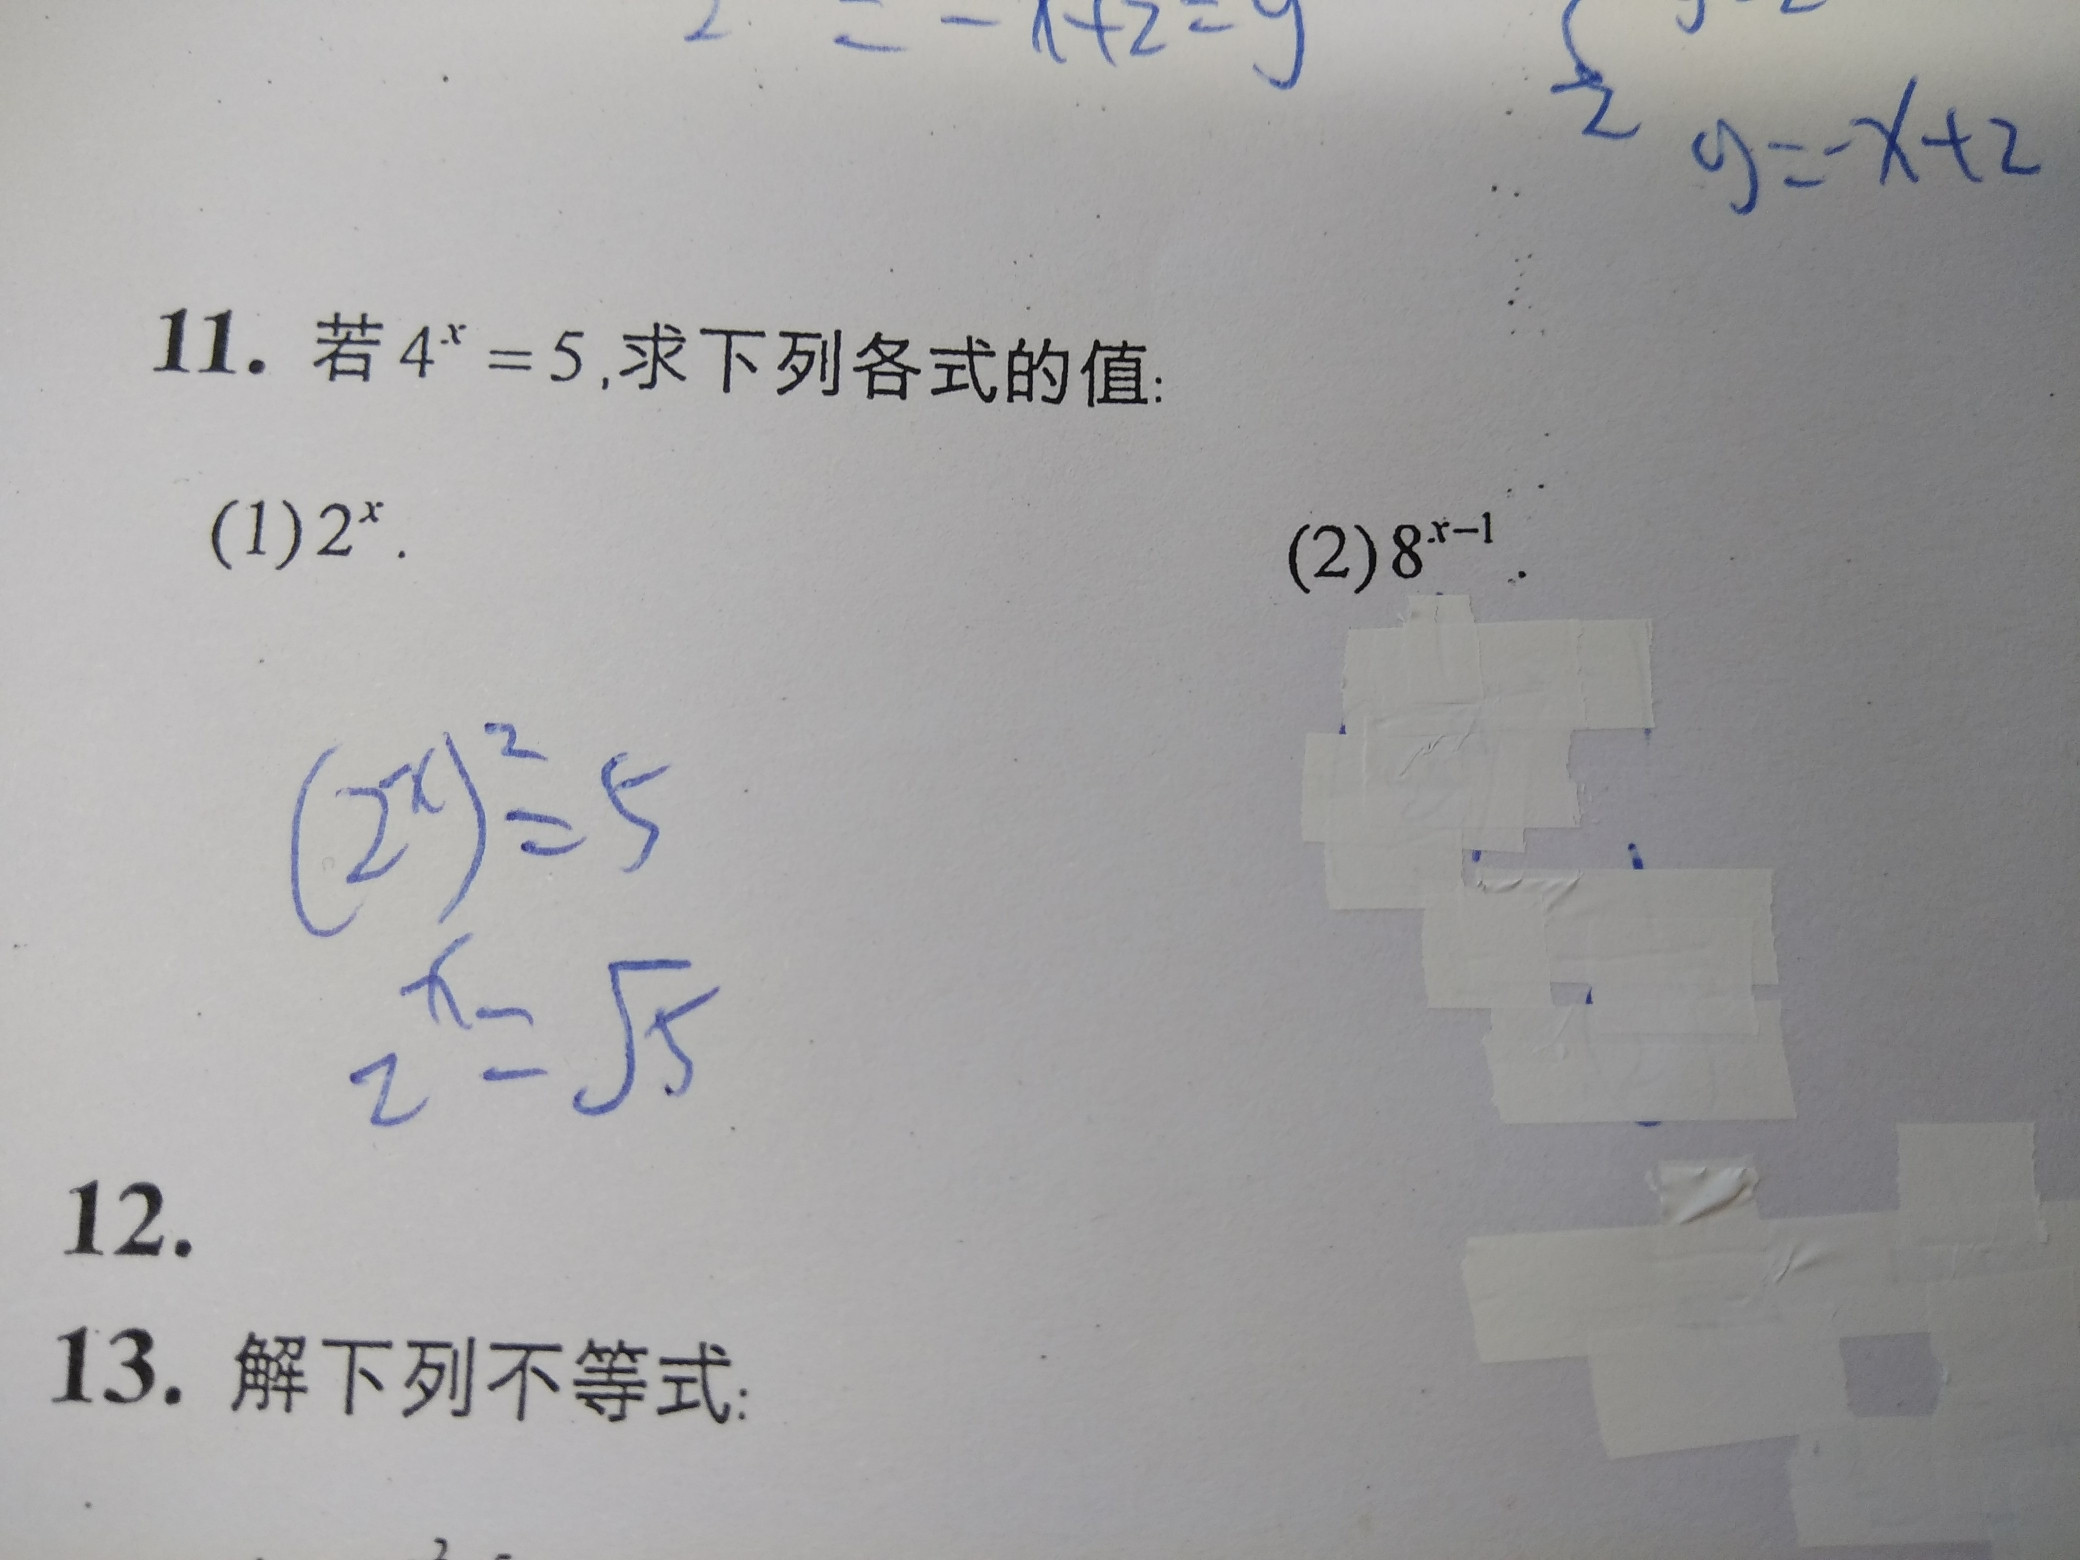 2 = -x+2=y
2 y=-x+2
11. 若4^x=5,求下列各式的值:
(1)2^x. (2)8^{x-1}.
(2^x)^2=5
2^x=√5
12.
13. 解下列不等式: